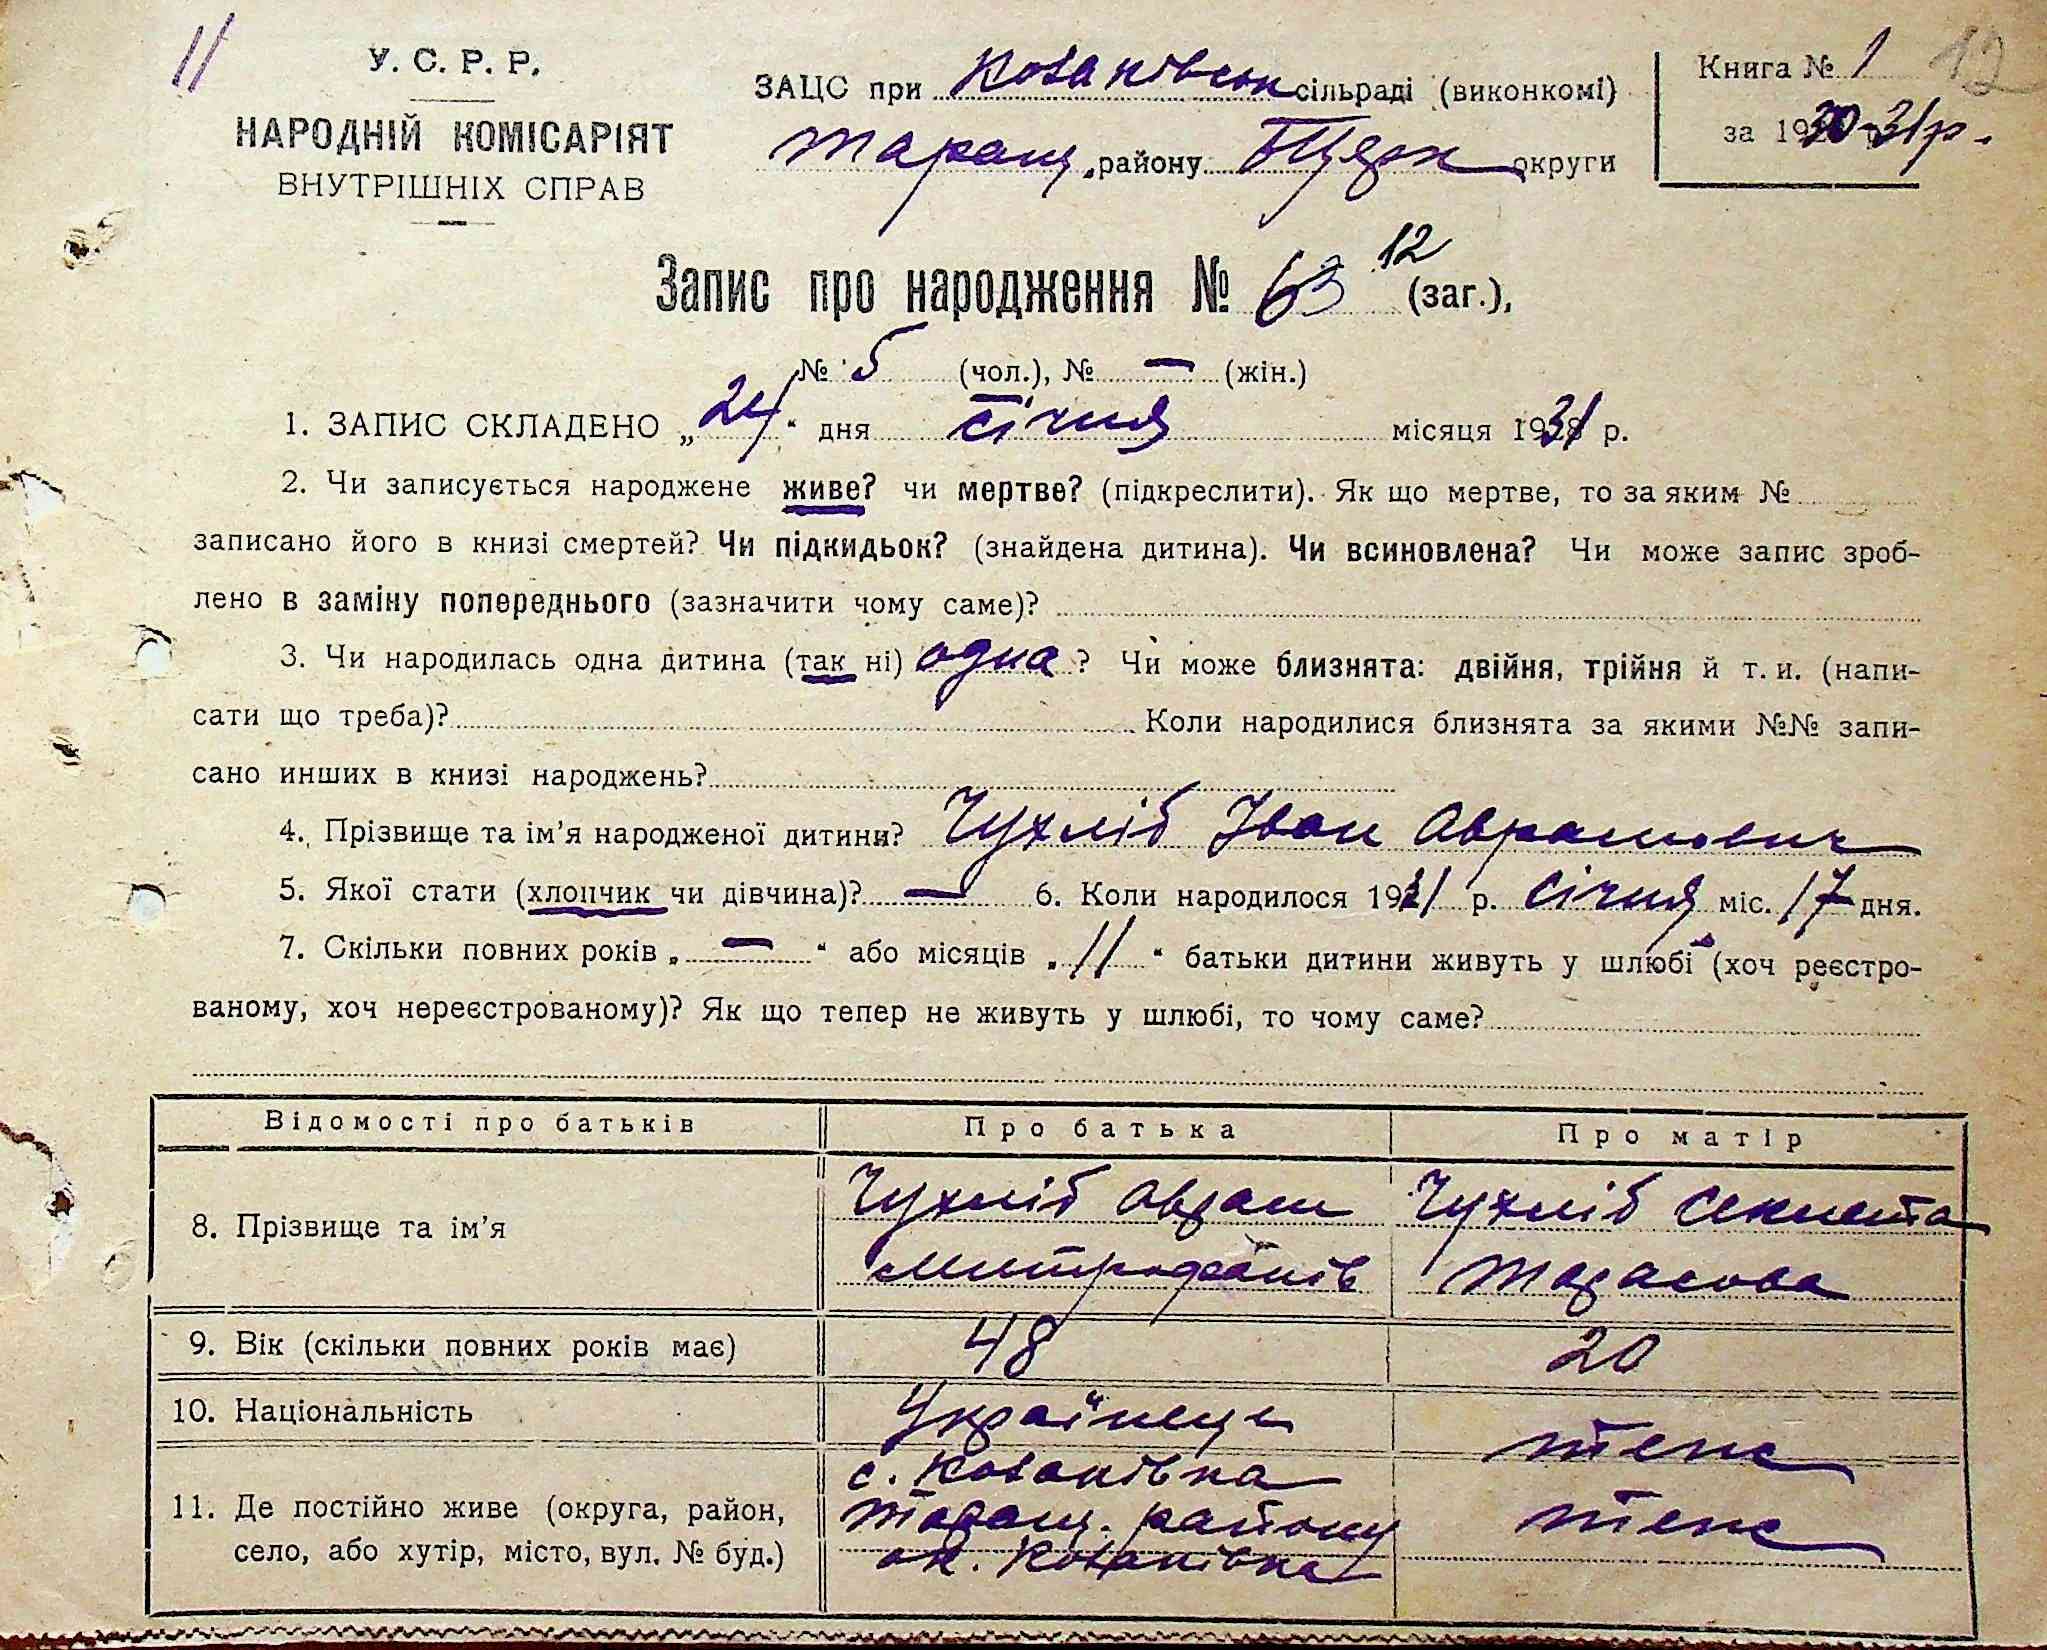 11
У. С. Р. Р.
НАРОДНІЙ КОМІСАРІЯТ
ВНУТРІШНІХ СПРАВ
ЗАЦС при Козанівськ сільраді (виконкомі)
Таращ. району БЦерк округи
Книга № 1 12
за 1930-31 р.
Запис про народження № 63 12 (заг.),
№ 5 (чол.), № — (жін.)
1. ЗАПИС СКЛАДЕНО „24“ дня січня місяця 1931 р.
2. Чи записується народжене живе? чи мертве? (підкреслити). Як що мертве, то за яким №
записано його в книзі смертей? Чи підкидьок? (знайдена дитина). Чи всиновлена? Чи може запис зроб-
лено в заміну попереднього (зазначити чому саме)?
3. Чи народилась одна дитина (так ні) одна? Чи може близнята: двійня, трійня й т. и. (напи-
сати що треба)? Коли народилися близнята за якими №№ запи-
сано инших в книзі народжень?
4. Прізвище та ім’я народженої дитини? Чухліб Іван Аврамович
5. Якої стати (хлопчик чи дівчина)? — 6. Коли народилося 1931 р. січня міс. 17 дня.
7. Скільки повних років „—“ або місяців „11“ батьки дитини живуть у шлюбі (хоч реєстро-
ваному, хоч нереєстрованому)? Як що тепер не живуть у шлюбі, то чому саме?
Відомості про батьків Про батька Про матір
8. Прізвище та ім’я Чухліб Аврам Чухліб
Митрофанів Тарасова
9. Вік (скільки повних років має) 48 20
10. Національність Українець теж
11. Де постійно живе (округа, район, с. Козанівка
Таращ. району теж
село, або хутір, місто, вул. № буд.) Козанівка